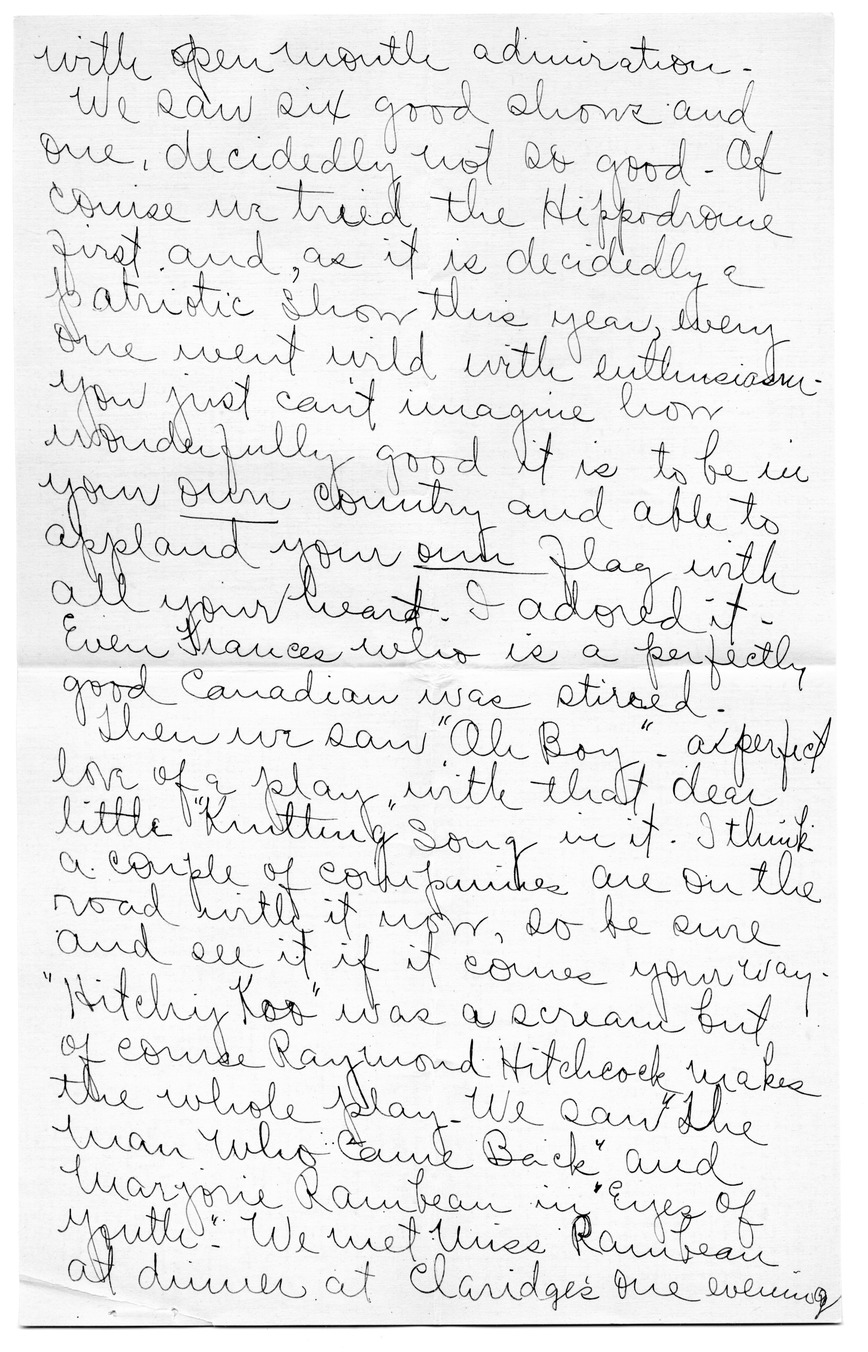 with open mouth admiration -
We saw six good shows and
one, decidedly not so good - Of
course we tried the Hippodrome
first and, as it is decidedly a
patriotic show this year, every
one went wild with enthusiasm -
you just can't imagine how
wonderfully good it is to be in
your own country and able to
applaud your own flag with
all your heart. I adored it -
Even Frances who is a perfectly
good Canadian was stirred.
Then we saw "Oh Boy" - a perfect
love of a play with that dear
little "Knitting" Song in it. I think
a couple of companies are on the
road with it now, so be sure
and see it if it comes your way.
"Hitchy Koo" was a scream but
of course Raymond Hitchcock makes
the whole play - We saw "The
Man Who Came Back" and
Marjorie Rambeau in "Eyes of
Youth". We met Miss Rambeau
at dinner at Claridge's one evening